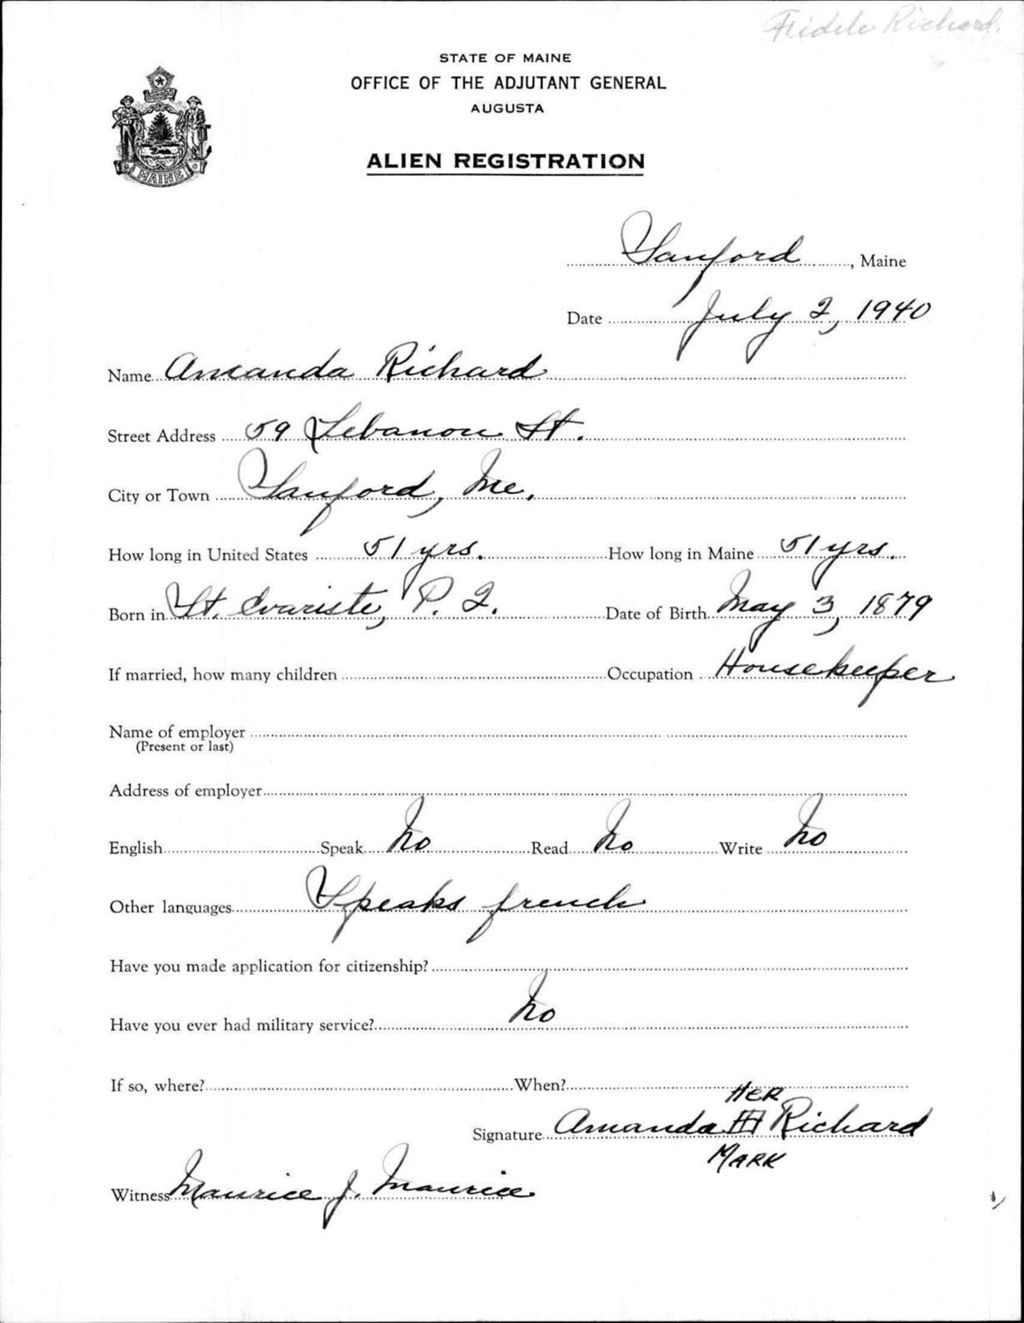 Fidele Richard.
STATE OF MAINE
OFFICE OF THE ADJUTANT GENERAL
AUGUSTA
ALIEN REGISTRATION
MAINE
Sanford, Maine
Date July 2, 1940
Name Amanda Richard
Street Address 59 Lebanon St.
City or Town Sanford, Me.
How long in United States 51 yrs. How long in Maine 51 yrs.
Born in St. Evariste, P. Q. Date of Birth May 3, 1879
If married, how many children Occupation Housekeeper
Name of employer
(Present or last)
Address of employer
English Speak No Read No Write No
Other languages Speaks french
Have you made application for citizenship?
Have you ever had military service? No
If so, where? When?
HER
Signature Amanda Richard
MARK
Witness Maurice J. Maurice